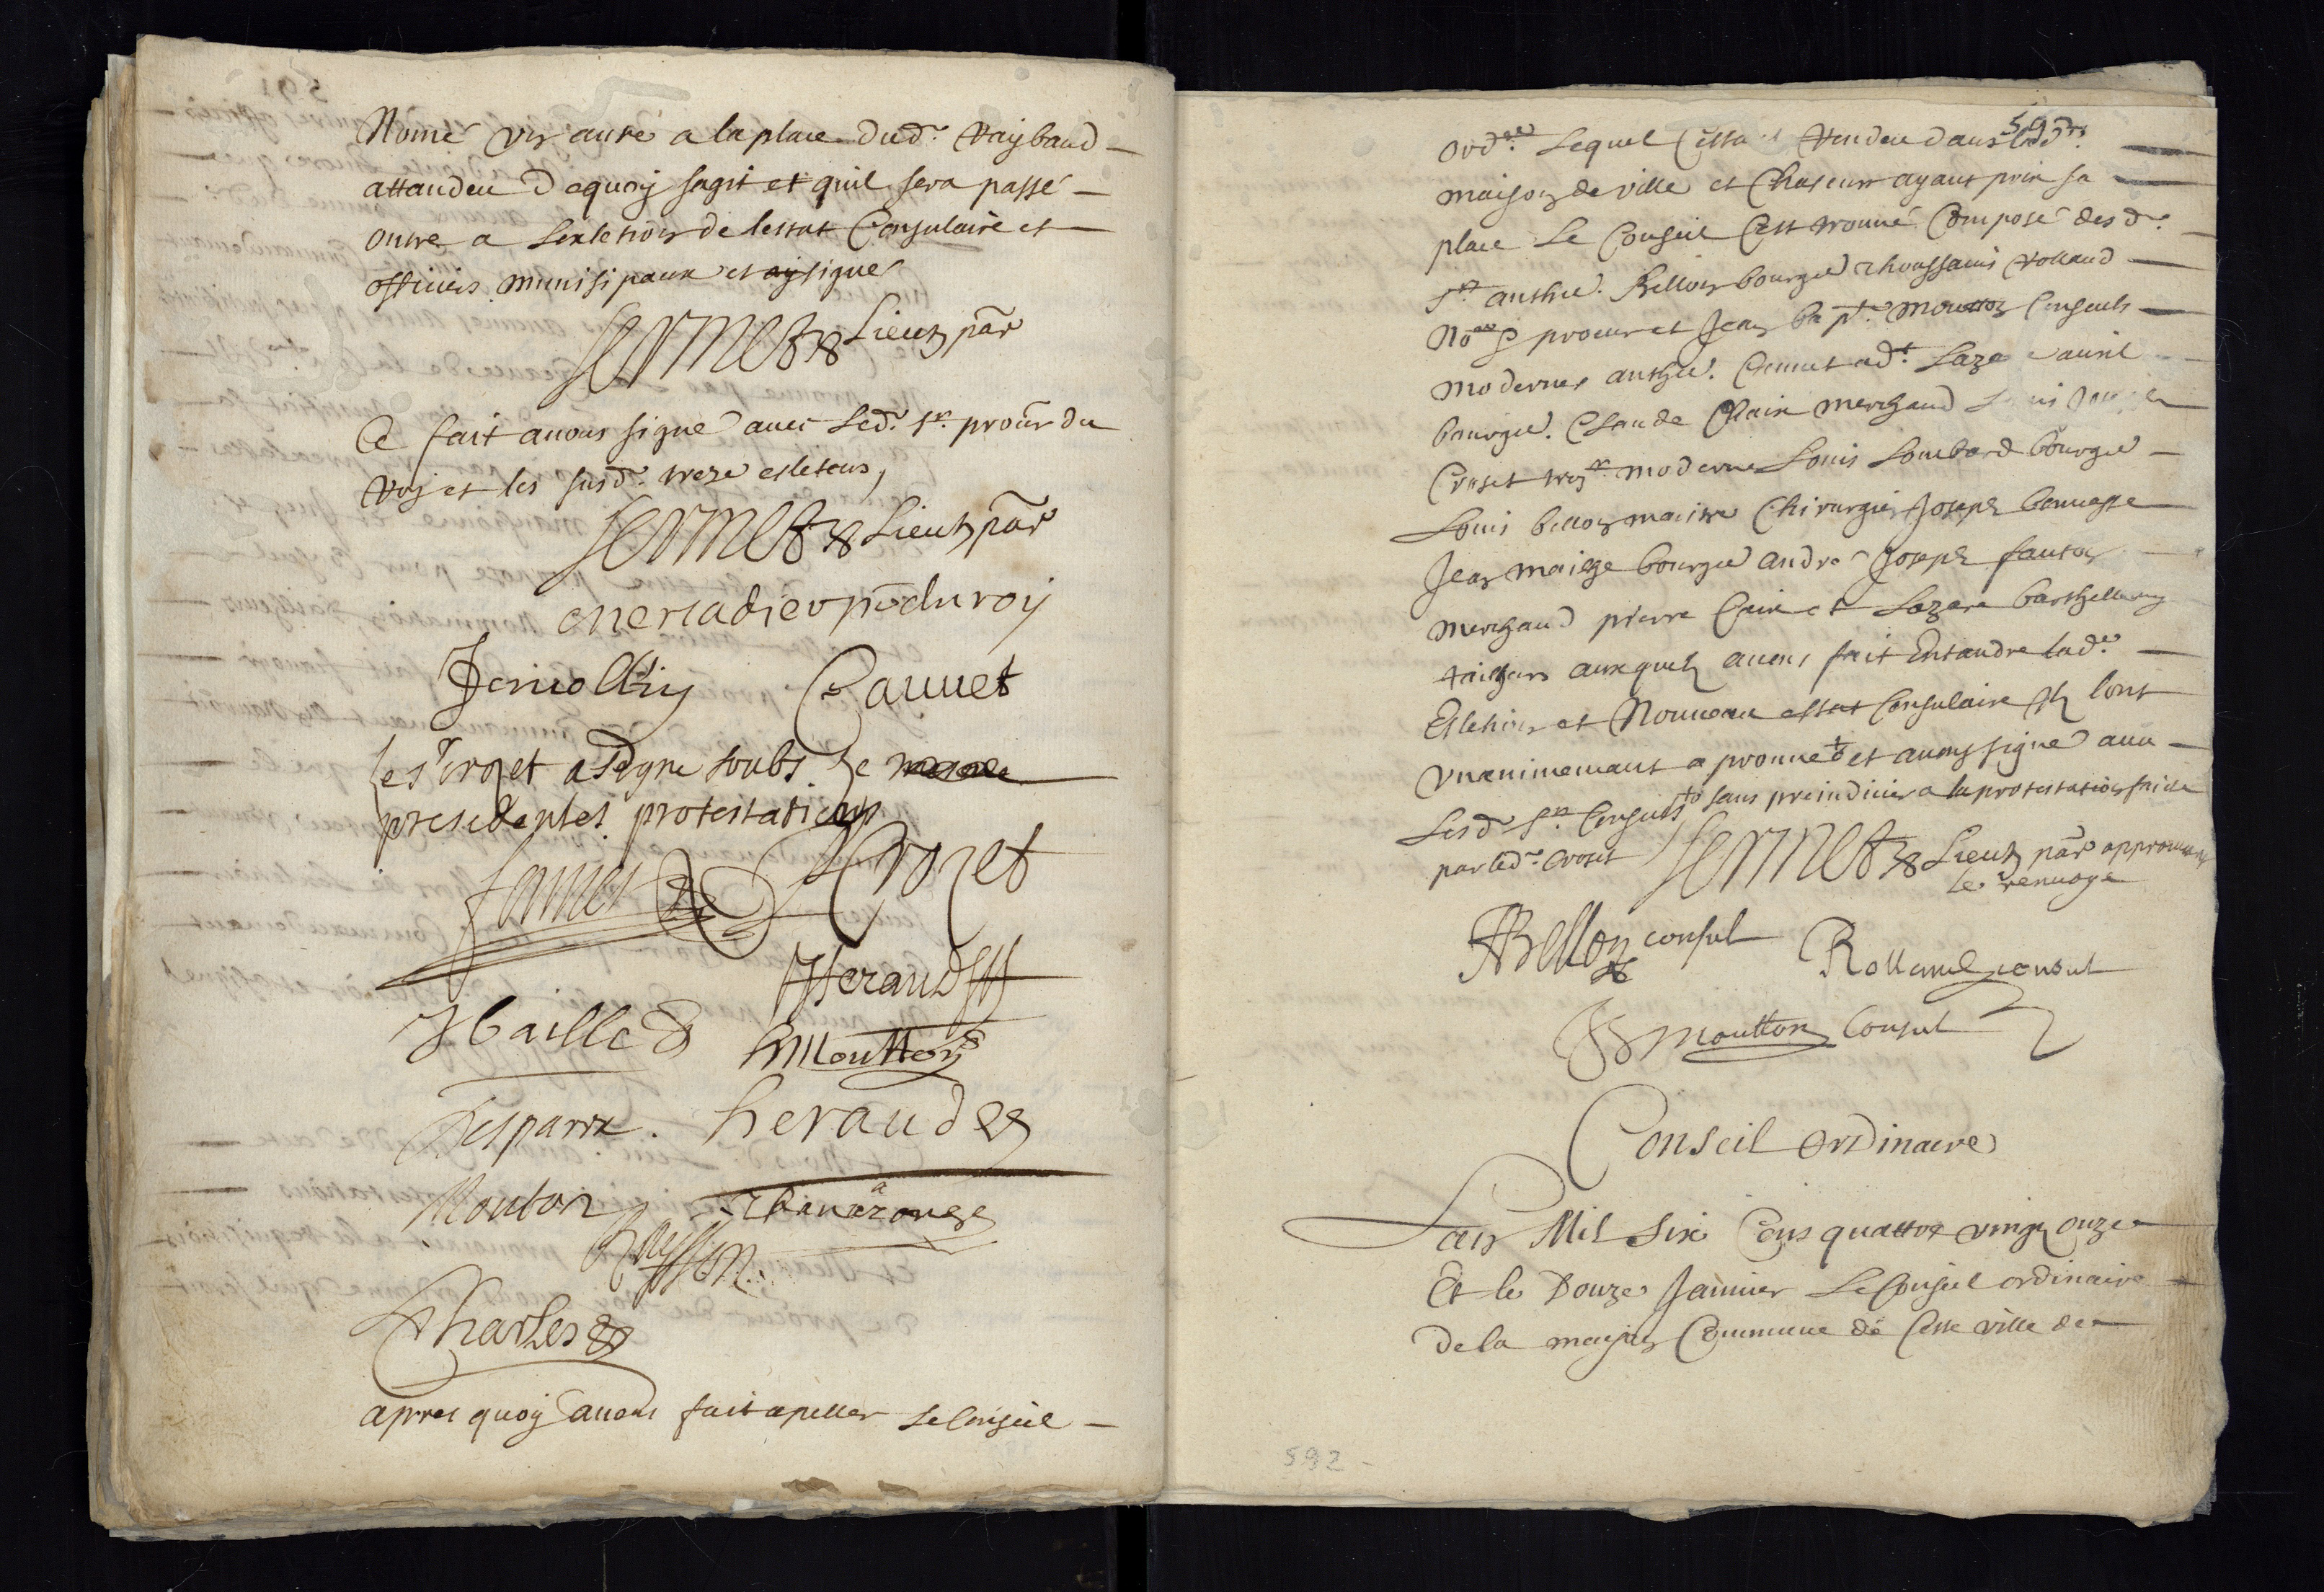 Nomé un autre a la place dud. Raybaud
attandeu dequoy sagit et quil sera passé
outre a leslection de lestat Consulaire et
officiers munisipaux et signé
Sermet Lieut par
Ce fait avons signé avec led. sr. procur du
Roy et les susd. treze esleteurs,
Sermet Lieut par
du roy
Cauvet
le sr crozet a signe soubs le
presedentes protestations
Crozet
Heraud
J Baille
Moutton
Desparra
heraud
Mouton
Charles
apres quoy avons fait apeller le Conseil
592
ordre. Lequel Cesta Rendeu dans lad.
maison de ville et Chaseun ayant prix sa
place Le Conseil Cest trouvé Composé des d.
srs anthe. Bellon bourgeé thoussains Rolland
No.re & procur et Jean bapte. moutton Consuls
modernes anthe. Cauvet adt. Lazare
bourgeé. Claude Clair merchand
Croset trezr. moderne Louis Lombard bourgeé
Louis bellon maitre Chirurgien Joseph bonnasse
Jean bourgeé andré Joseph fauton
merchand pierre Clair et Lazare barthellemy
avons fait Entandre lad.e
Esletion et Nouveau estat Consulaire qlz lont
unanimemant aprouvé et avons signé avec
Lesd. srs Consuls sans preiudicier a la protestation faicte
par led. Croset
Sermet Lieut par approuvant
le renvoye
ABellon consul
Rolland consul
JB moutton Consul
Conseil Ordinaire
Lan Mil six Cens quattre vingtz onze
Et le Douze Janvier Le Conseil ordinaire
de la maison Commune de Ceste ville de
592